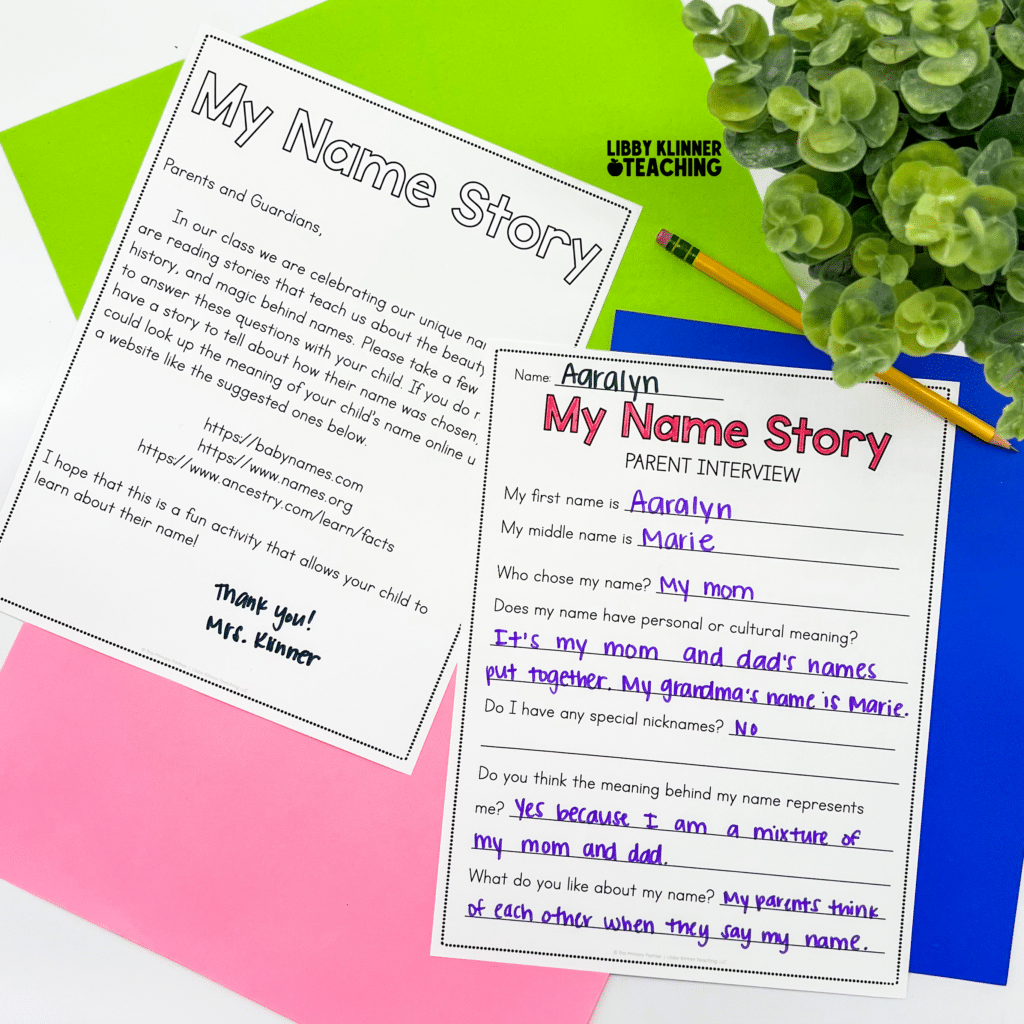 LIBBY KLINNER
TEACHING
My Name Story
Parents and Guardians,
In our class we are celebrating our unique
are reading stories that teach us about the beauty
history, and magic behind names. Please take a few
to answer these questions with your child. If you do
have a story to tell about how their name was chosen,
could look up the meaning of your child's name online
a website like the suggested ones below.
https://babynames.com
https://www.names.org
https://www.ancestry.com/learn/facts
I hope that this is a fun activity that allows your child to
learn about their name!
Thank you!
Mrs. Klinner
Name: Aaralyn
My Name Story
PARENT INTERVIEW
My first name is Aaralyn
My middle name is Marie
Who chose my name? My mom
Does my name have personal or cultural meaning?
It's my mom and dad's names
put together. My grandma's name is Marie.
Do I have any special nicknames? No
Do you think the meaning behind my name represents
me? Yes because I am a mixture of
my mom and dad.
What do you like about my name? My parents think
of each other when they say my name.